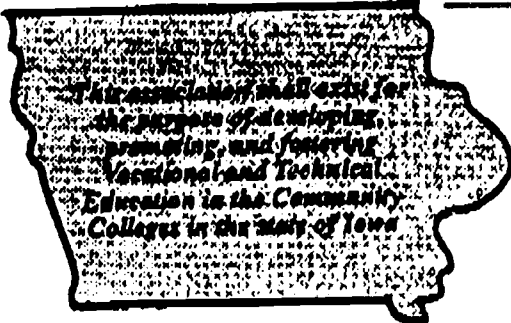 This association shall exist for
the purpose of developing,
promoting, and fostering
Vocational and Technical
Education in the Community
Colleges in the state of Iowa